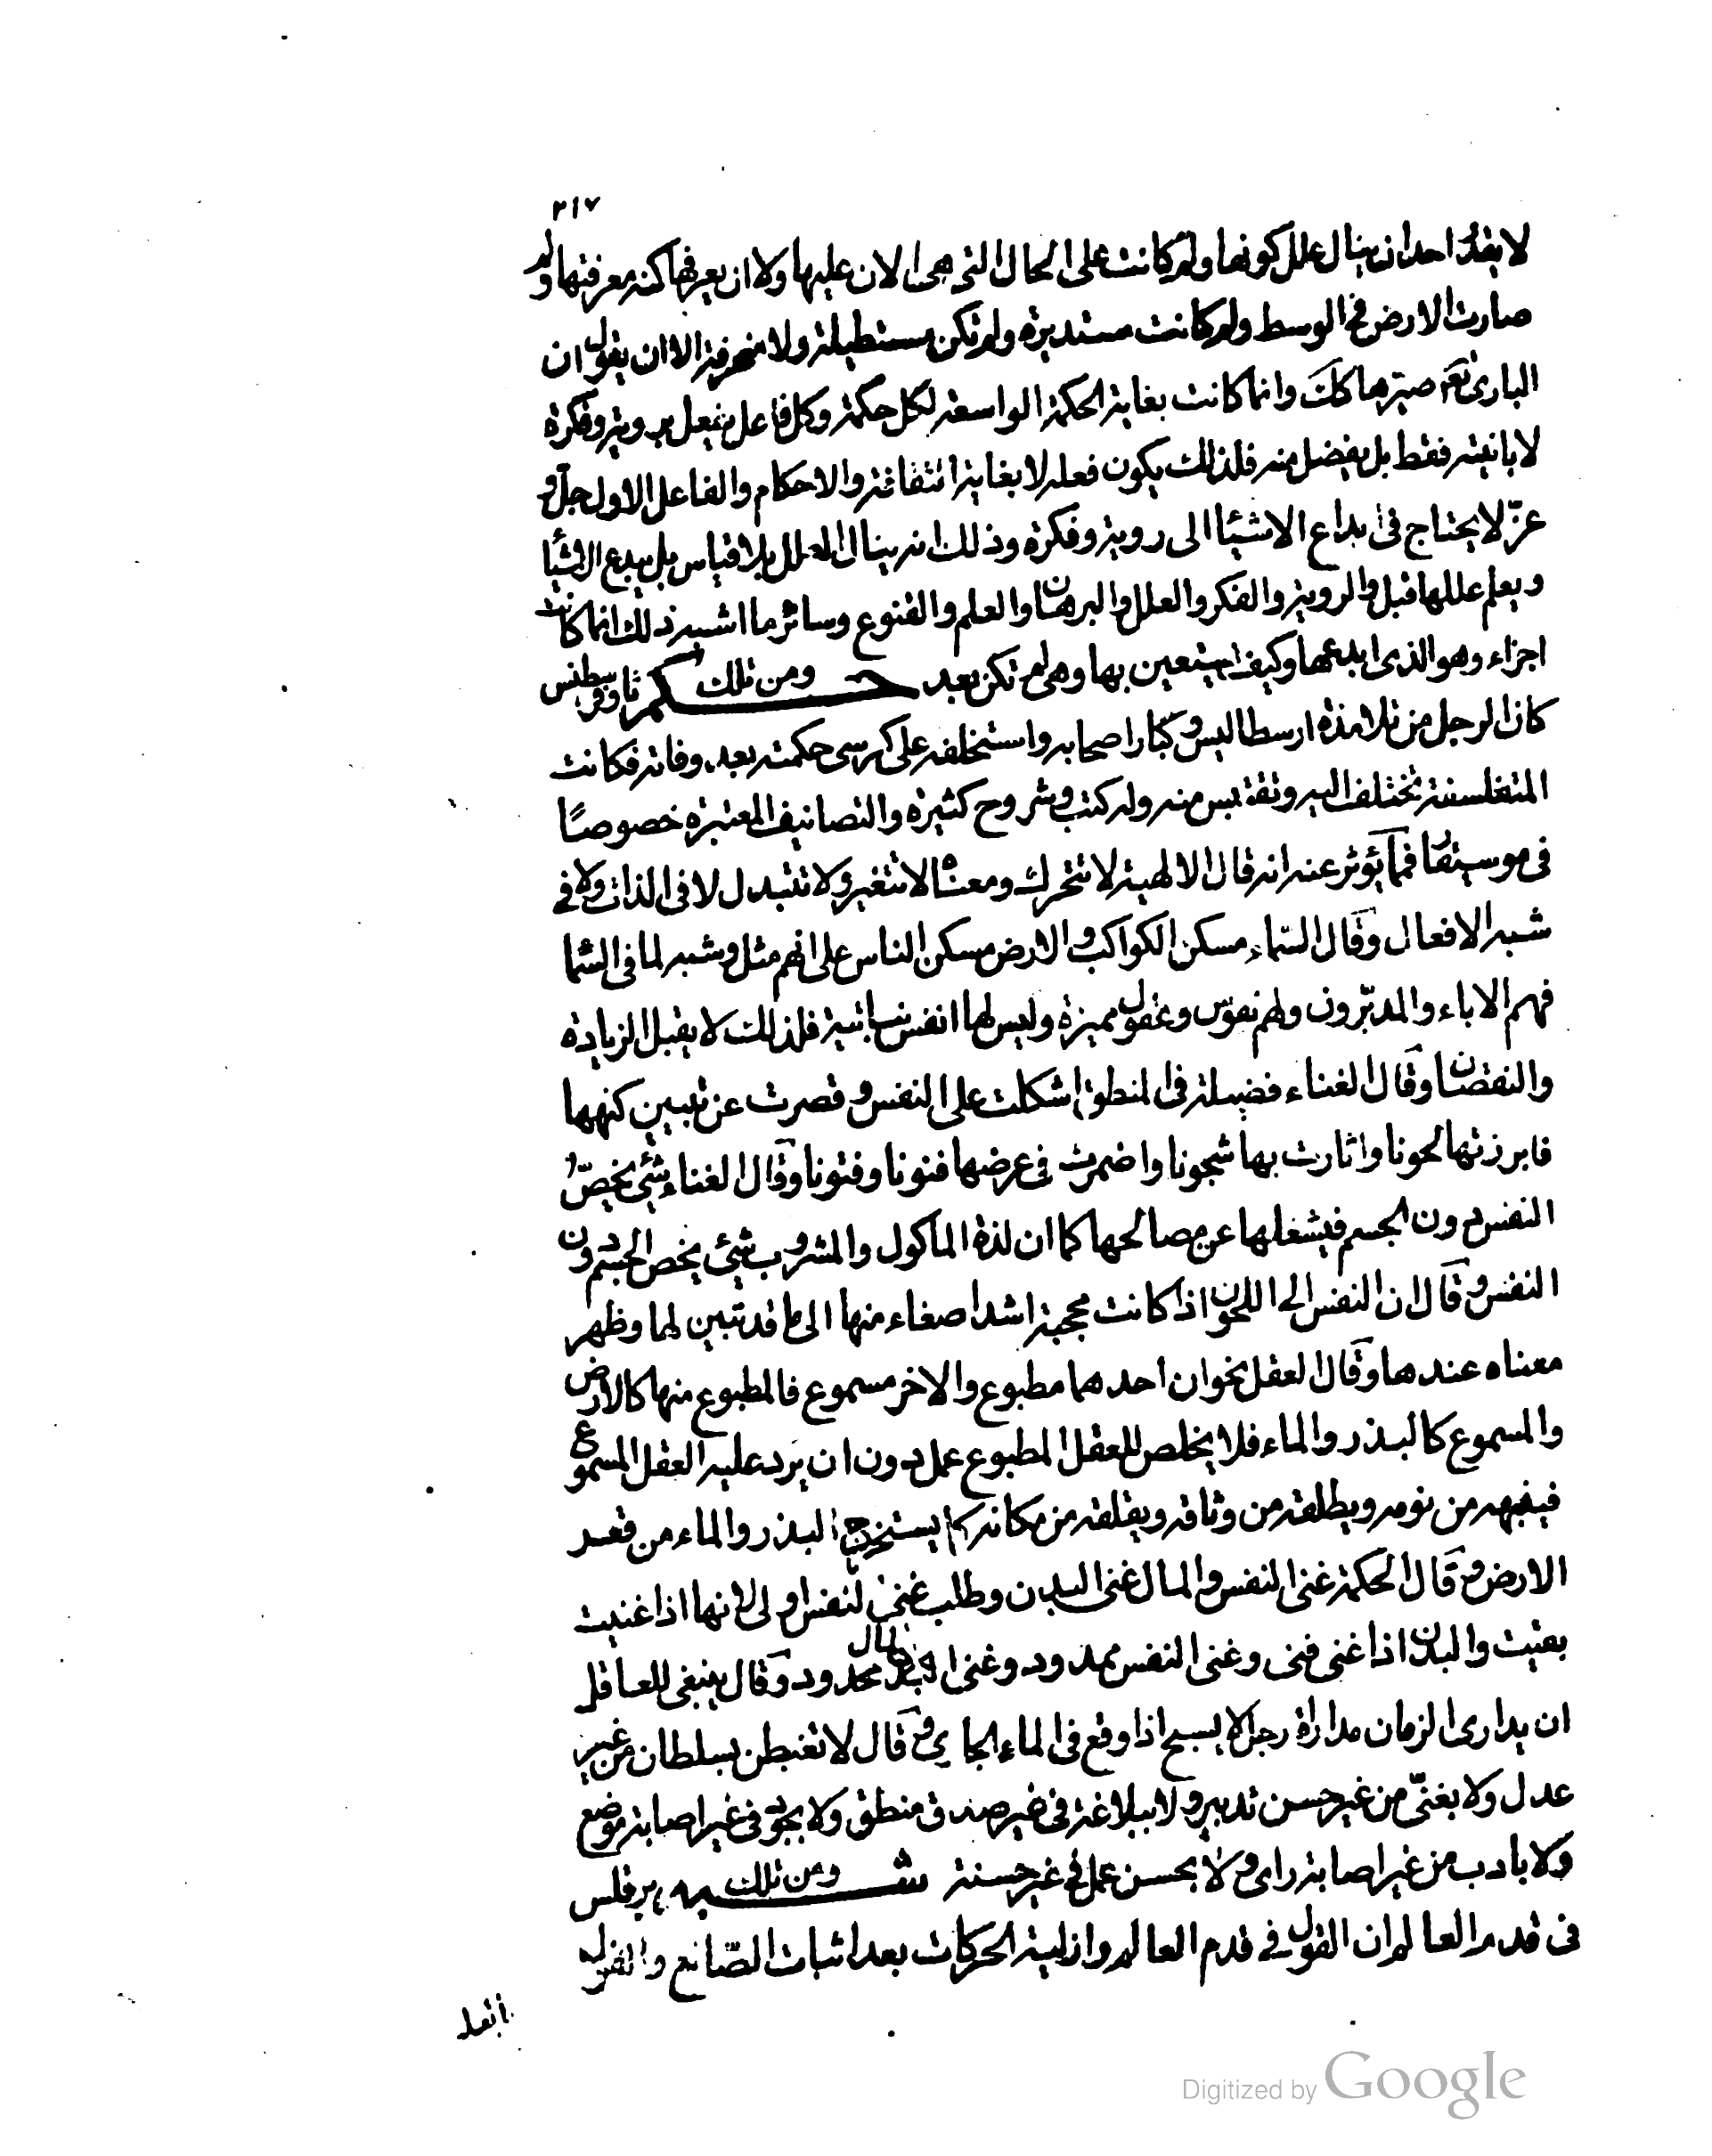 ٣١٧
لا يقدر احد ان ينال علل كونها ولم كانت على الحال التى هى الان عليها ولا ان يعرفها كنه معرفتها ولم
صارت الارض فى الوسط ولم كانت مستديرة ولم تكن مستطيلة ولا منحرفة الا ان يقول ان
البارئ تعم صيرها كك وانما كانت بغاية الحكمة الواسعة لكل حكمة وكل فاعل يفعل بروية وفكرة
لا بانيته فقط بل بفضل منه فلذلك يكون فعله لا بغاية الثقافة والاحكام والفاعل الاول جل و
عزّ لا يحتاج فى ابداع الاشيئا الى روية وفكرة وذلك انه ينال العلل بلا قياس بل يبدع الاشيئا
ويعلم عللها قبل والروية والفكر والعلل والبرهان والعلم والقنوع وسائر ما اشبه ذلك انما كانت
اجزاء وهو الذى ابدعها وكيف يستعين بها وهى لم تكن بعد ومن تلك حكم ثاوفرسطيس
كان الرجل من تلامذة ارسطاليس وكبار اصحابه واستخلفه على كرسى حكمته بعد وفاته فكانت
المتفلسفة تختلف اليه وتقتبس منه وله كتب وشروح كثيرة والتصانيف المعتبرة خصوصًا
فى موسيقا فمما يؤثر عنه انه قال الالهية لا تتحرك ومعناه لا تتغير ولا تتبدل لا فى الذات ولا فى
شبه الافعال وقال السّماء مسكن الكواكب والارض مسكن الناس على انهم مثل وشبه لما فى السّما
فهم الاباء والمدبّرون ولهم نفوس وعقول مميزة وليس لها انفس نباتية فلذلك لا يقبل الزيادة
والنقصان وقال الغناء فضيلة فى المنطق اشكلت على النفس وقصرت عن تبيين كنهها
فابرزتها لحونا واثارت بها شجونا واضمرت فى عرضها فنونا وفتونا وقال الغناء شئ يخصّ
النفس دون الجسم فيشغلها عن مصالحها كما ان لذة الماكول والمشروب شئ يخص الجسم دون
النفس وقال ان النفس الى اللحون اذا كانت محجبة اشد اصغاء منها الى ما قد تبين لها وظهر
معناه عندها وقال العقل نحوان احدهما مطبوع والاخر مسموع فالمطبوع منها كالارض
والمسموع كالبذر والماء فلا يخلص للعقل المطبوع عمل دون ان يرد عليه العقل المسموع
فينبهه من نومه ويطلقه من وثاقه ويقلقه من مكانه كما يستخرج البذر والماء من قعر
الارض وقال الحكمة غنى النفس والمال غنى البدن وطلب غنى النفس اولى لانها اذا غنيت
بقيت والبدن اذا غنى فنى وغنى النفس ممدود وغنى البدن محدود وقال ينبغى للعاقل
ان يدارى الزمان مداراة رجل لا يسبح اذا وقع فى الماء الجارى وقال لا تغبطن بسلطان من غير
عدل ولا بغنّى من غير حسن تدبير ولا ببلاغة فى غير صدق منطق ولا بجود فى غير اصابة موضع
ولا بادب من غير اصابة راى ولا بحسن عمل فى غير حسنة ومن تلك شبه برقلس
فى قدم العالم ان القول فى قدم العالم وازلية الحركات بعد اثبات الصّانع والقول
Digitized by Google